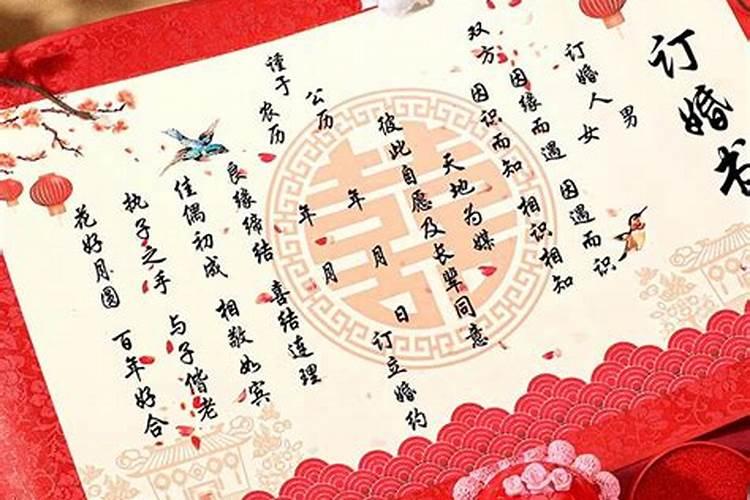 订婚书
男
订婚人 女
双方 因缘而遇 因遇而识
因识而知 相识相知
天地为媒
彼此自愿及长辈同意
谨于 公历 年 月 日 订立婚约
农历 年 月
良缘缔结 喜结连理
佳偶初成 相敬如宾
执子之手 与子偕老
花好月圆 百年好合
囍